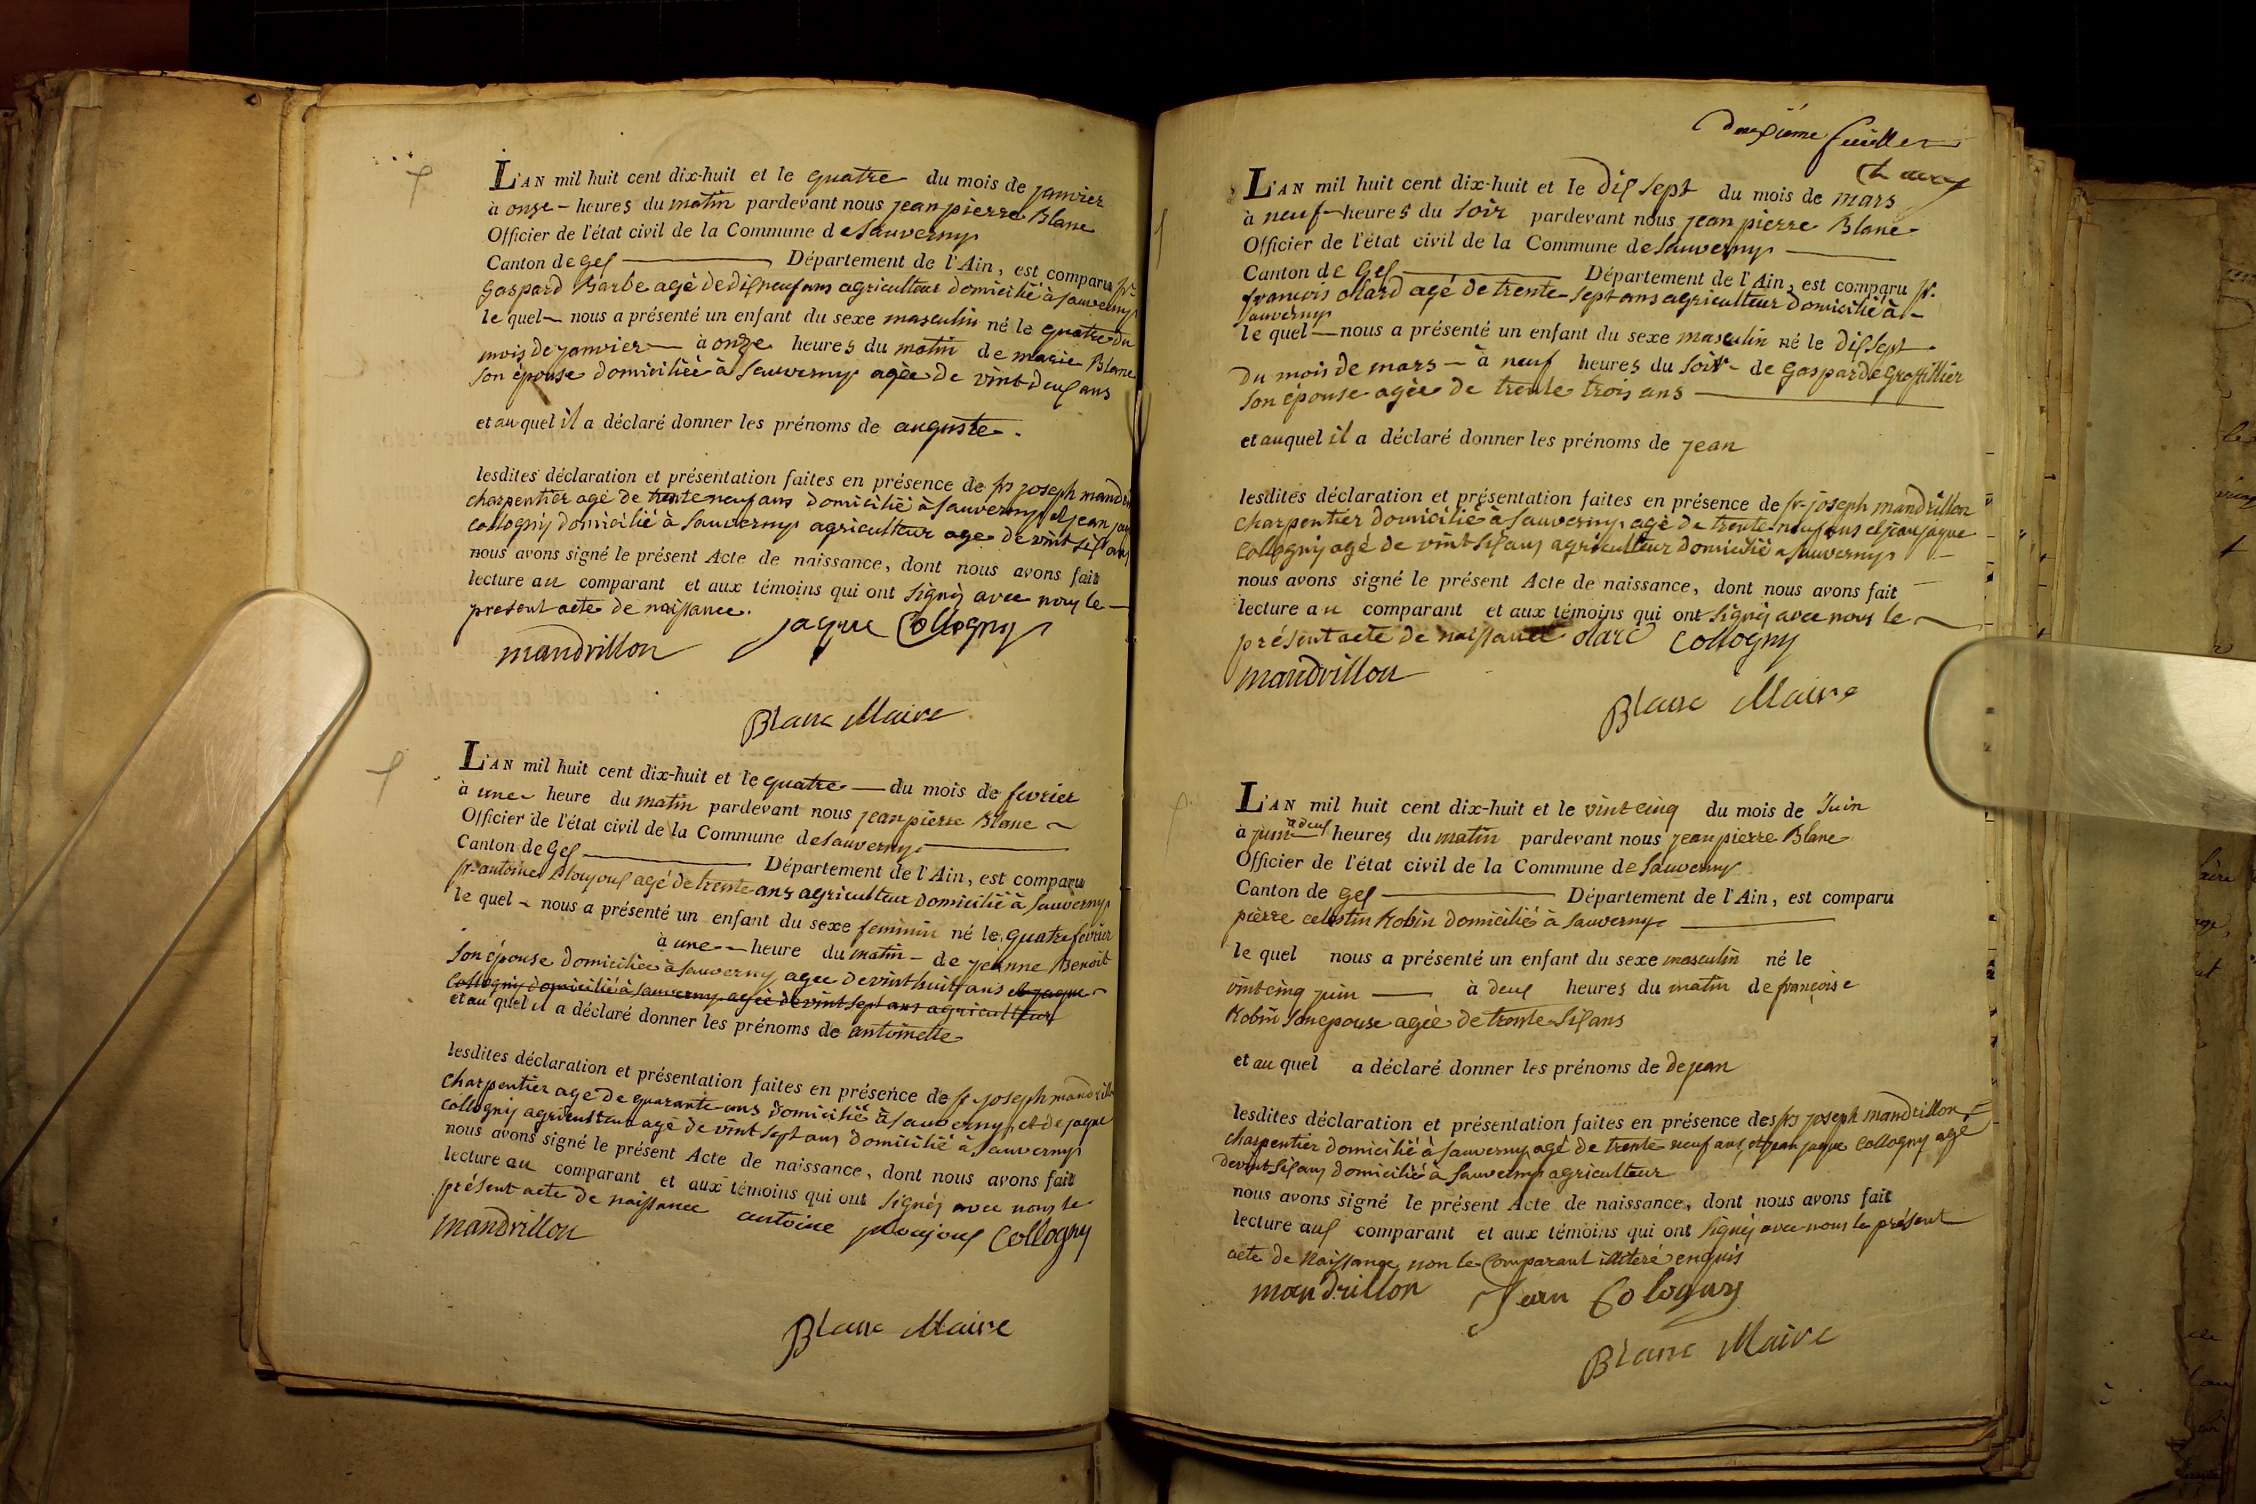 L'AN mil huit cent dix-huit et le quatre du mois de janvier
à onze heures du matin pardevant nous jean pierre Blanc
Officier de l'état civil de la Commune de Sauverny
Canton de Gex Département de l'Ain, est comparu sr
Gaspard Barbe agé de dix neuf ans agriculteur domicilié à Sauverny
le quel nous a présenté un enfant du sexe masculin né le quatre du
mois de janvier à onze heures du matin de marie Blanc
son épouse domiciliée à Sauverny agée de vint deux ans
et au quel il a déclaré donner les prénoms de auguste.
lesdites déclaration et présentation faites en présence de srs joseph mandri
charpentier agé de trente neuf ans domicilié à Sauverny et jean jaq
Collogny domicilié à Sauverny agriculteur agé de vint six ans
nous avons signé le présent Acte de naissance, dont nous avons fait
lecture au comparant et aux témoins qui ont signés avec nous le
present acte de naissance.
jaque Collogny
mandrillon
Blanc Maire
L'AN mil huit cent dix-huit et le quatre du mois de fevrier
à une heure du matin pardevant nous jean pierre Blanc
Officier de l'état civil de la Commune de Sauverny
Canton de Gex Département de l'Ain, est comparu
sr antoine Ploujoux agé de trente ans agriculteur domicilié à Sauverny
le quel nous a présenté un enfant du sexe feminin né le quatre fevrier
à une heure du matin de jeanne Benoit
son épouse domiciliée à Sauverny agee de vint huit ans et jaque
Collogny domicilié à Sauverny agée de vint sept ans agriculteur
et au quel il a déclaré donner les prénoms de antoinette
lesdites déclaration et présentation faites en présence de sr joseph mandrillo
charpentier agé de quarante ans domicilié à Sauverny et de jaque
Collogny agriculteur agé de vint sept ans domicilié à Sauverny
nous avons signé le présent Acte de naissance, dont nous avons fait
lecture au comparant et aux témoins qui ont signés avec nous le
présent acte de naissance
mandrillon antoine ploujoux Collogny
Blanc Maire
Deuxième feuillet
L'AN mil huit cent dix-huit et le dix sept du mois de mars
à neuf heures du soir pardevant nous jean pierre Blanc
Officier de l'état civil de la Commune de Sauverny
Canton de Gex Département de l'Ain, est comparu sr
francois olard agé de trente sept ans agriculteur domicilié à
Sauverny
le quel nous a présenté un enfant du sexe masculin né le dix sept
du mois de mars à neuf heures du soir de Gasparde Groffillier
son épouse agée de trente trois ans
et auquel il a déclaré donner les prénoms de jean
lesdites déclaration et présentation faites en présence de sr joseph mandrillon
charpentier domicilié à Sauverny agé de trente neuf ans et jean jaque
Collogny agé de vint six ans agriculteur domicilié à Sauverny
nous avons signé le présent Acte de naissance, dont nous avons fait
lecture au comparant et aux témoins qui ont signés avec nous le
présent acte de naissance olard Collogny
mandrillon
Blanc Maire
L'AN mil huit cent dix-huit et le vint cinq du mois de Juin
à deux heures du matin pardevant nous jean pierre Blanc
Officier de l'état civil de la Commune de Sauverny
Canton de Gex Département de l'Ain, est comparu
pierre celestin Robin domicilié à Sauverny
le quel nous a présenté un enfant du sexe masculin né le
vint cinq juin à deux heures du matin de françoise
Robin son epouse agée de trente six ans
et au quel a déclaré donner les prénoms de de jean
lesdites déclaration et présentation faites en présence des srs joseph mandrillon
charpentier domicilié à Sauverny agé de trente neuf ans et jean jaque Collogny agé
de vint six ans domicilié à Sauverny agriculteur
nous avons signé le présent Acte de naissance, dont nous avons fait
lecture aux comparant et aux témoins qui ont signés avec nous le présent
acte de naissance non le comparant illiteré enquis
mandrillon Jean Cologny
Blanc Maire